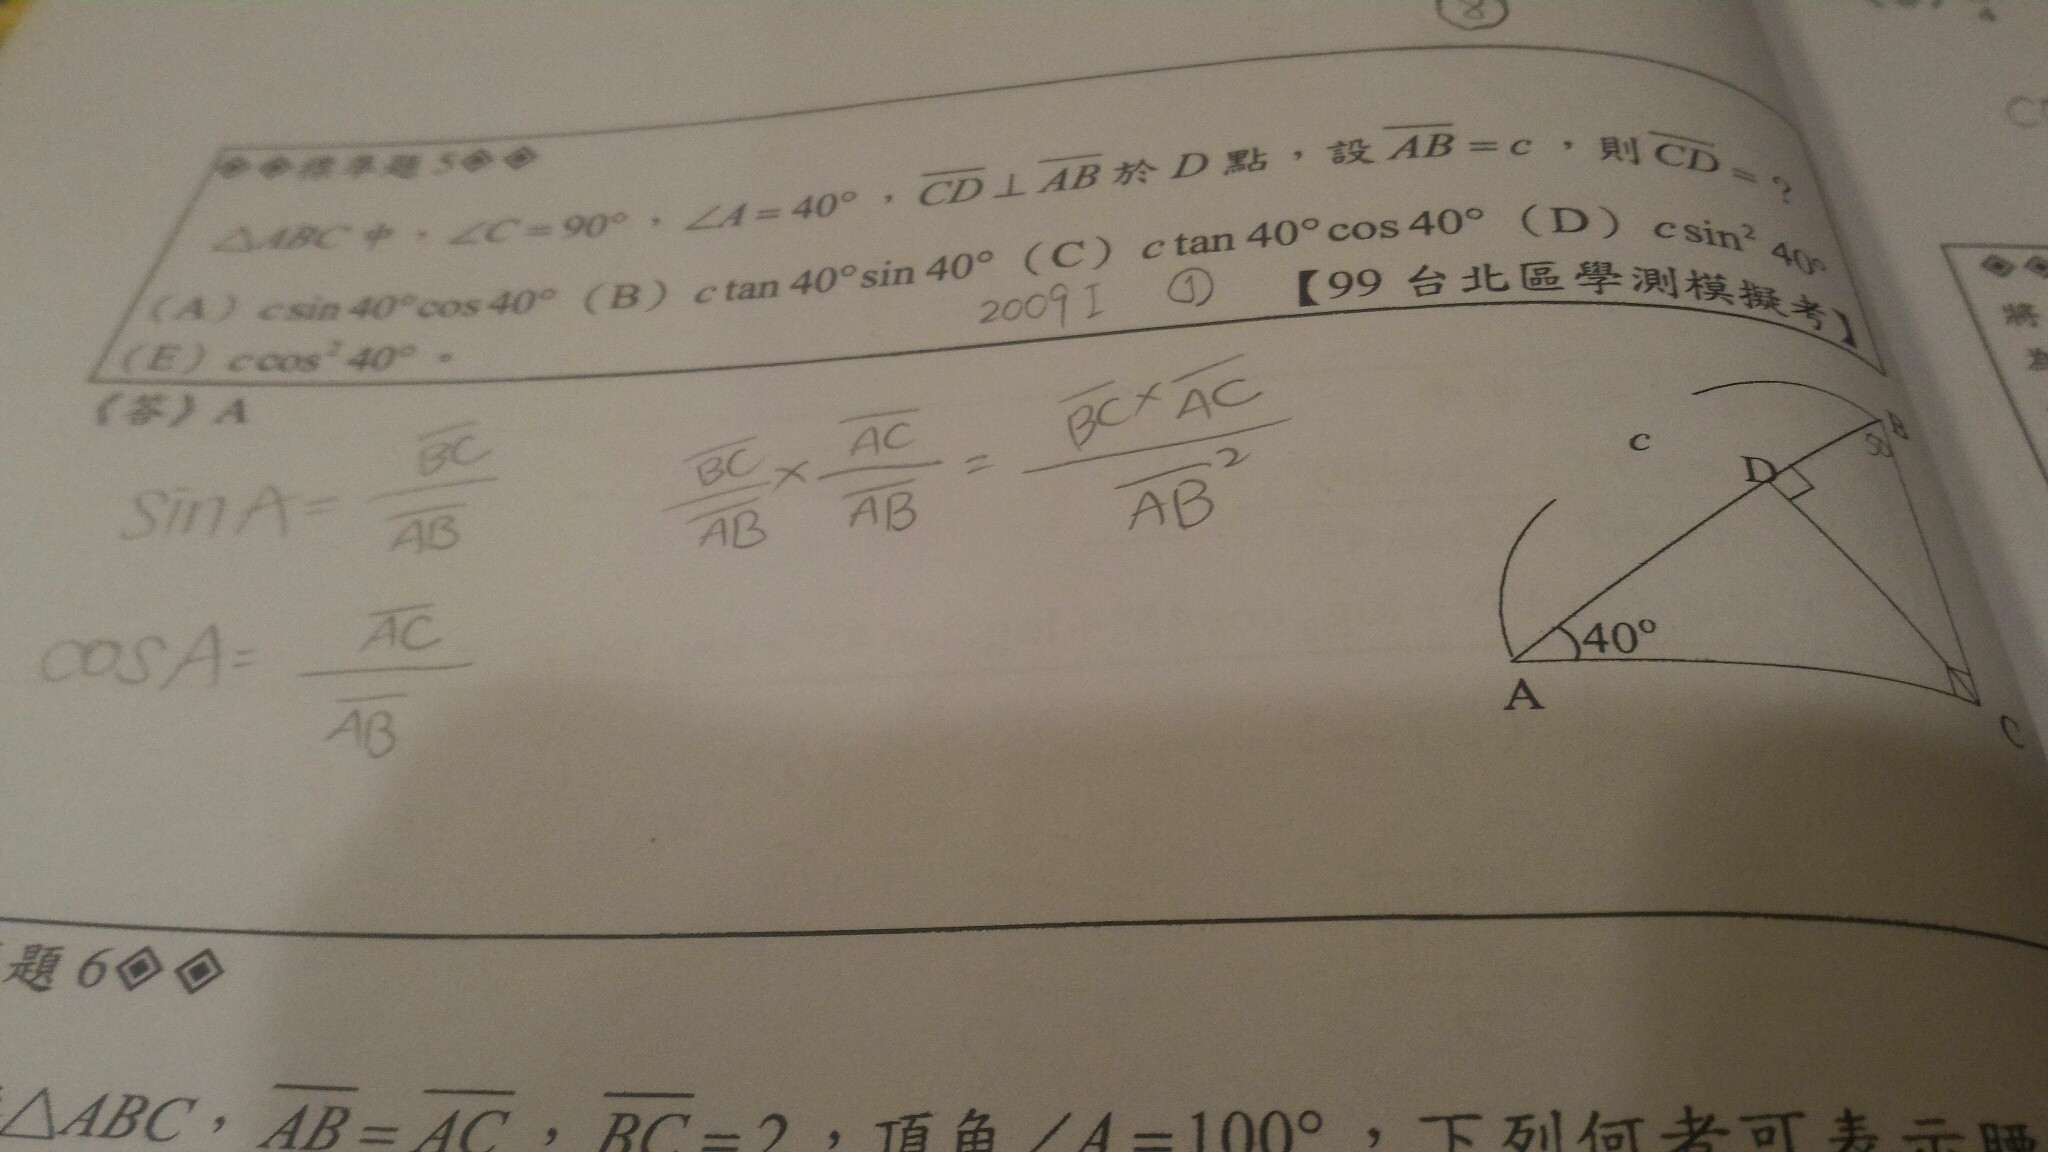 8
◈◈標準題 5◈◈
△ABC 中,∠C=90°,∠A=40°,CD⊥AB 於 D 點,設 AB=c,則 CD=?
(A) c sin 40° cos 40° (B) c tan 40° sin 40° (C) c tan 40° cos 40° (D) c sin² 40°
(E) c cos² 40°。
2009 I ① 【99 台北區學測模擬考】
《答》A
sin A = BC/AB
BC/AB × AC/AB = BC×AC/AB²
cos A = AC/AB
c
B
50
D
40°
A
C
題 6◈◈
△ABC,AB=AC,BC=2,頂角∠A=100°,下列何者可表示腰
將
為